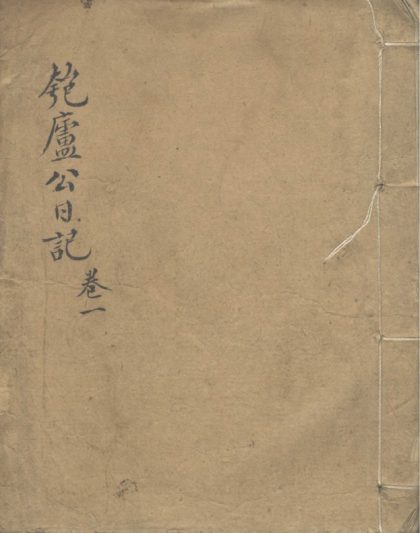 匏廬公日記
卷一